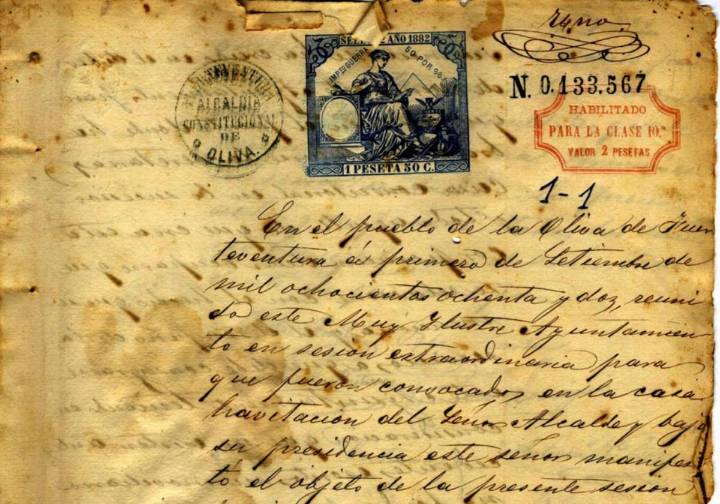 ALCALDIA
CONSTITUCIONAL
DE
OLIVA.
AÑO 1882
50 POR
1 PESETA 50 C.
N. 0.133.567
HABILITADO
PARA LA CLASE 10.ª
VALOR 2 PESETAS
1-1
En el pueblo de la Oliva de Fuer
teventura á primero de Setiembre de
mil ochocientos ochenta y dos, reuni
do este Muy Ylustre Ayuntamien
to en sesion extraordinaria para
que fueron convocados en la casa
havitacion del Señor Alcalde y bajo
su presidencia este señor manifes
tó el objeto de la presente sesion